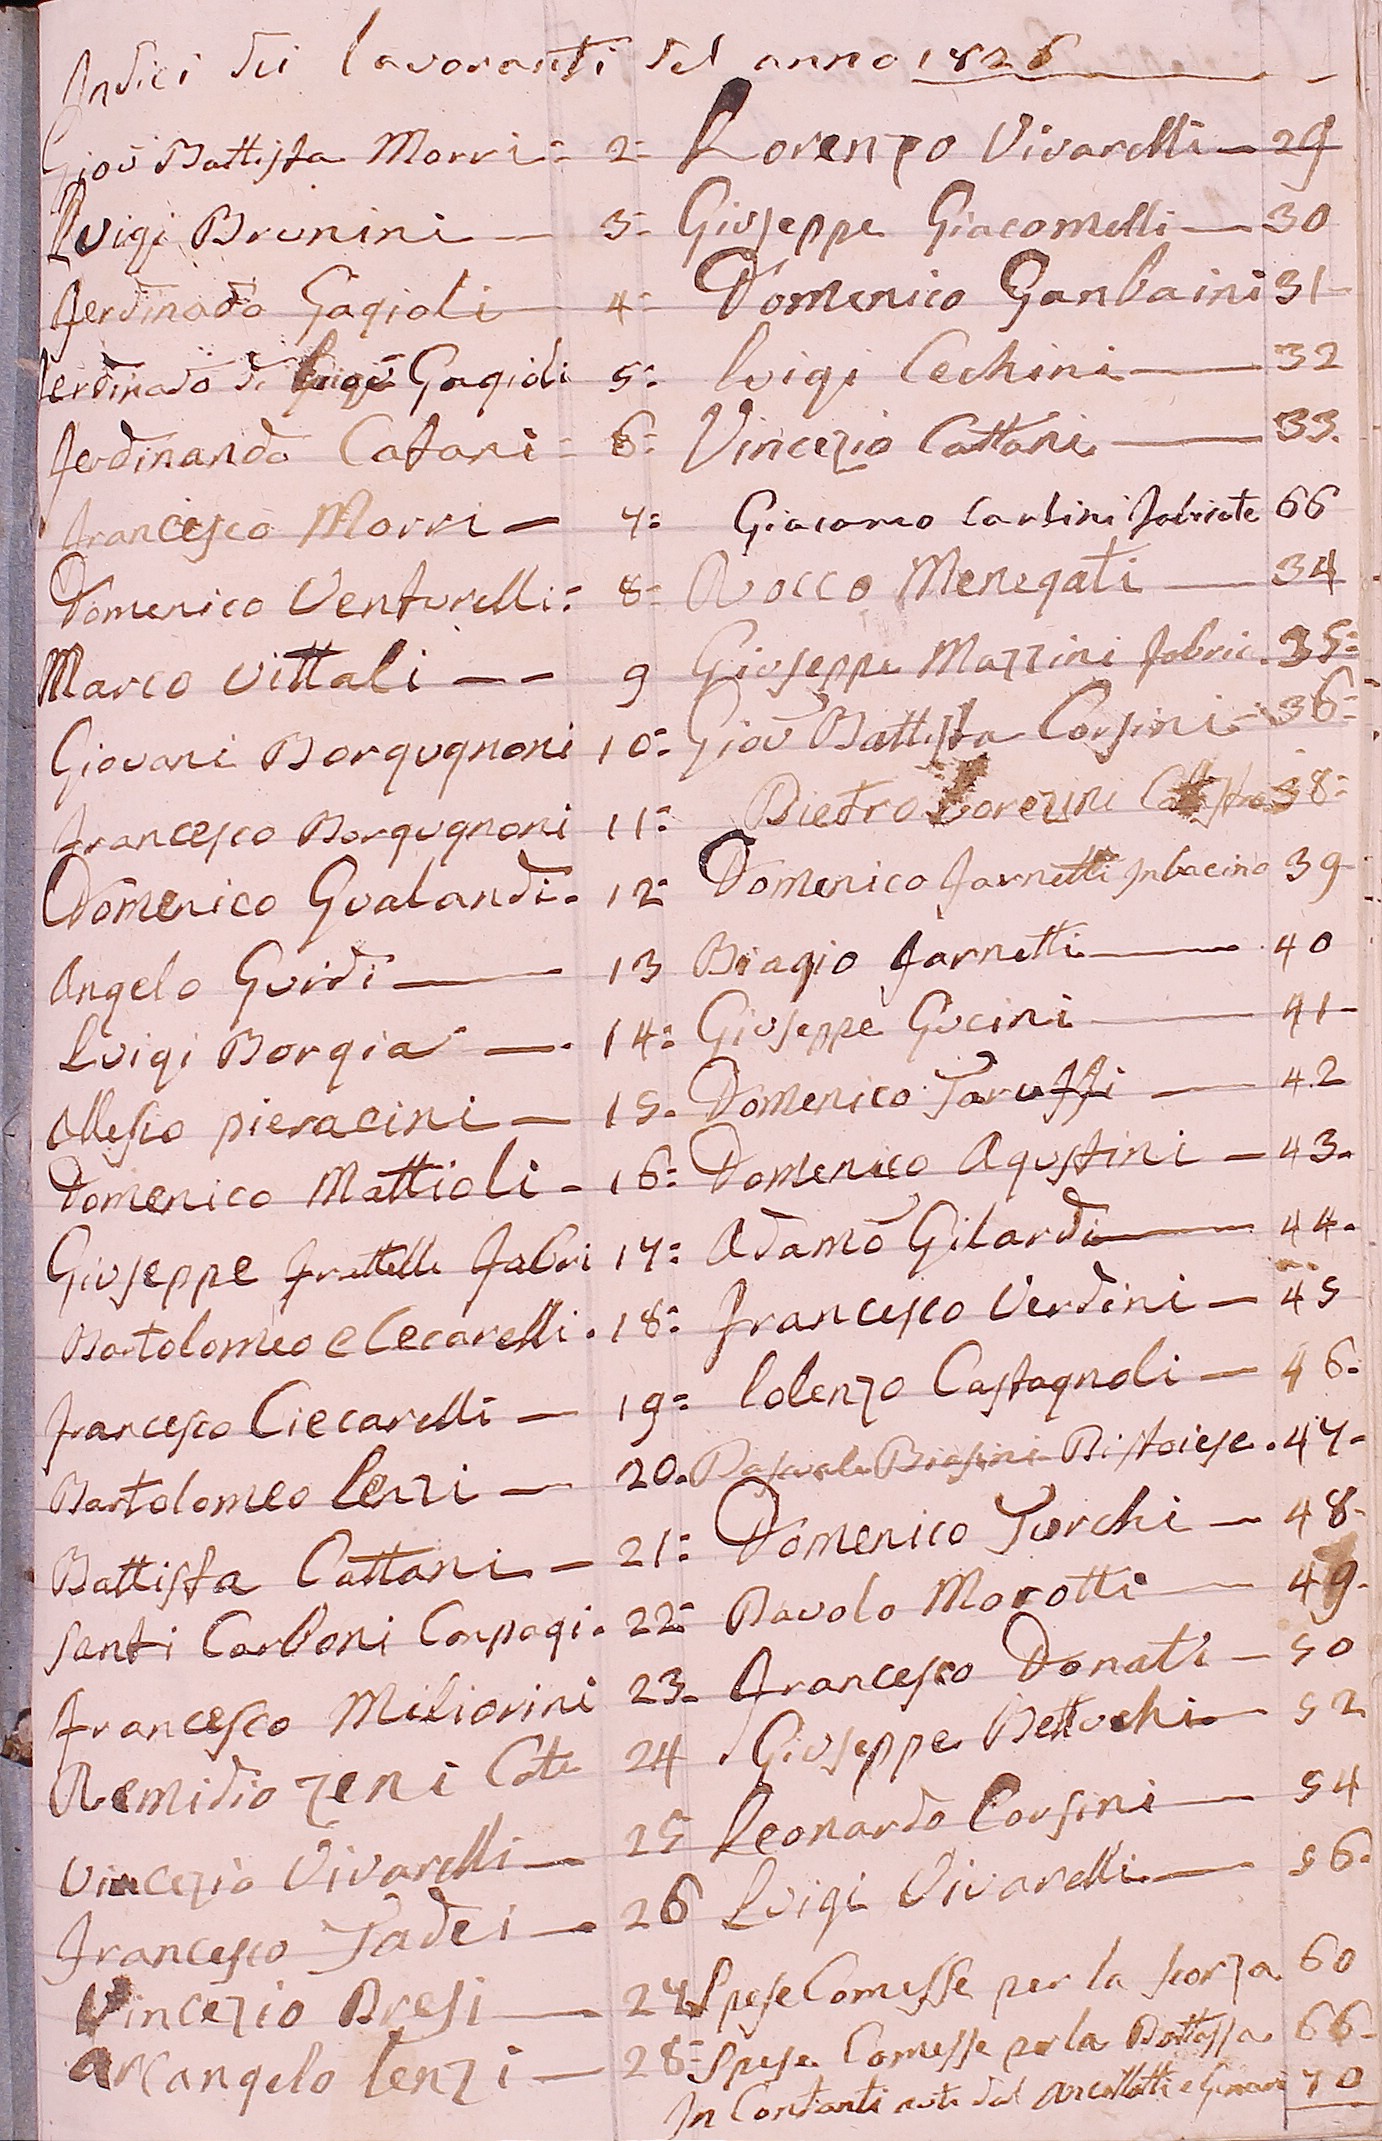 Indici dei lavoranti del anno 1826
Giov Battista Morri = 2=
Luigi Brunini — 3=
Ferdinado Gagioli 4=
Ferdinado di Luigi Gagioli 5=
Ferdinando Catani = 6=
Francesco Morri — 7=
Domenico Venturelli = 8=
Marco Vittali — — 9
Giovani Borgugnoni 10=
Francesco Borgugnoni 11=
Domenico Gualandi. 12=
Angelo Guidi — 13
Luigi Borgia — . 14=
Allesio pieracini — 15.
Domenico Mattioli - 16=
Giuseppe fratelli fabri 17=
Bartolomeo e Cecarelli . 18=
Francesco Ciecarelli — 19=
Bartolomeo lenzi — 20.
Battista Cattani — 21=
Santi Carboni Conpagi. 22=
Francesco Miliorini 23.
Remidio zeni 24
Vincezio Vivarelli — 25
Francesco Tadei — 26
Vincezio Bresi — 27
Arcangelo lenzi — 28=
Lorenzo Vivarelli — 29
Giuseppe Giacomelli — 30
Domenico Ganbaini 31-
Luigi Cechini — 32
Vincezio Cattani — 33.
Giacomo Carbini 66
Rocco Menegati — 34
Giuseppe Mazzini fabric. 35=
Giov Battista Corsini - 36=
Pietro Lorezini 38=
Domenico Farnetti 39-
Biagio Farnetti — 40
Giuseppe Gucini — 41-
Domenico Taruffi — 42
Domenico Agustini — 43.
Adamo Gilardi — 44.
Francesco Verdini — 45
lolenzo Castagnoli — 46.
Pasquale Biasini Pistoiese . 47-
Domenico Turchi — 48-
Pavolo Morotti — 49.
Francesco Donati — 50
Giuseppe Bettuchi — 52
Leonardo Corsini — 54
Luigi Vivarelli — 56.
Spese Comesse per la scorza 60
Spese Comesse per la 66-
In Contanti dal 70